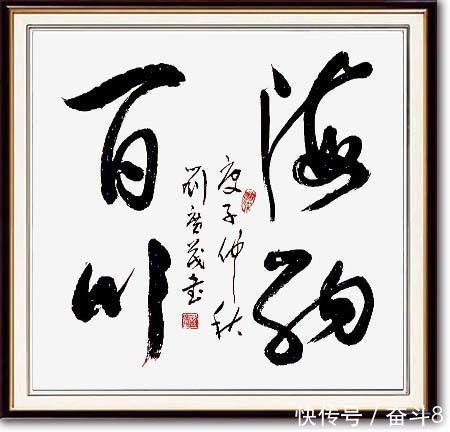 海納
百川
庚子仲秋
劉廣茂書
快传号 / 奋斗8